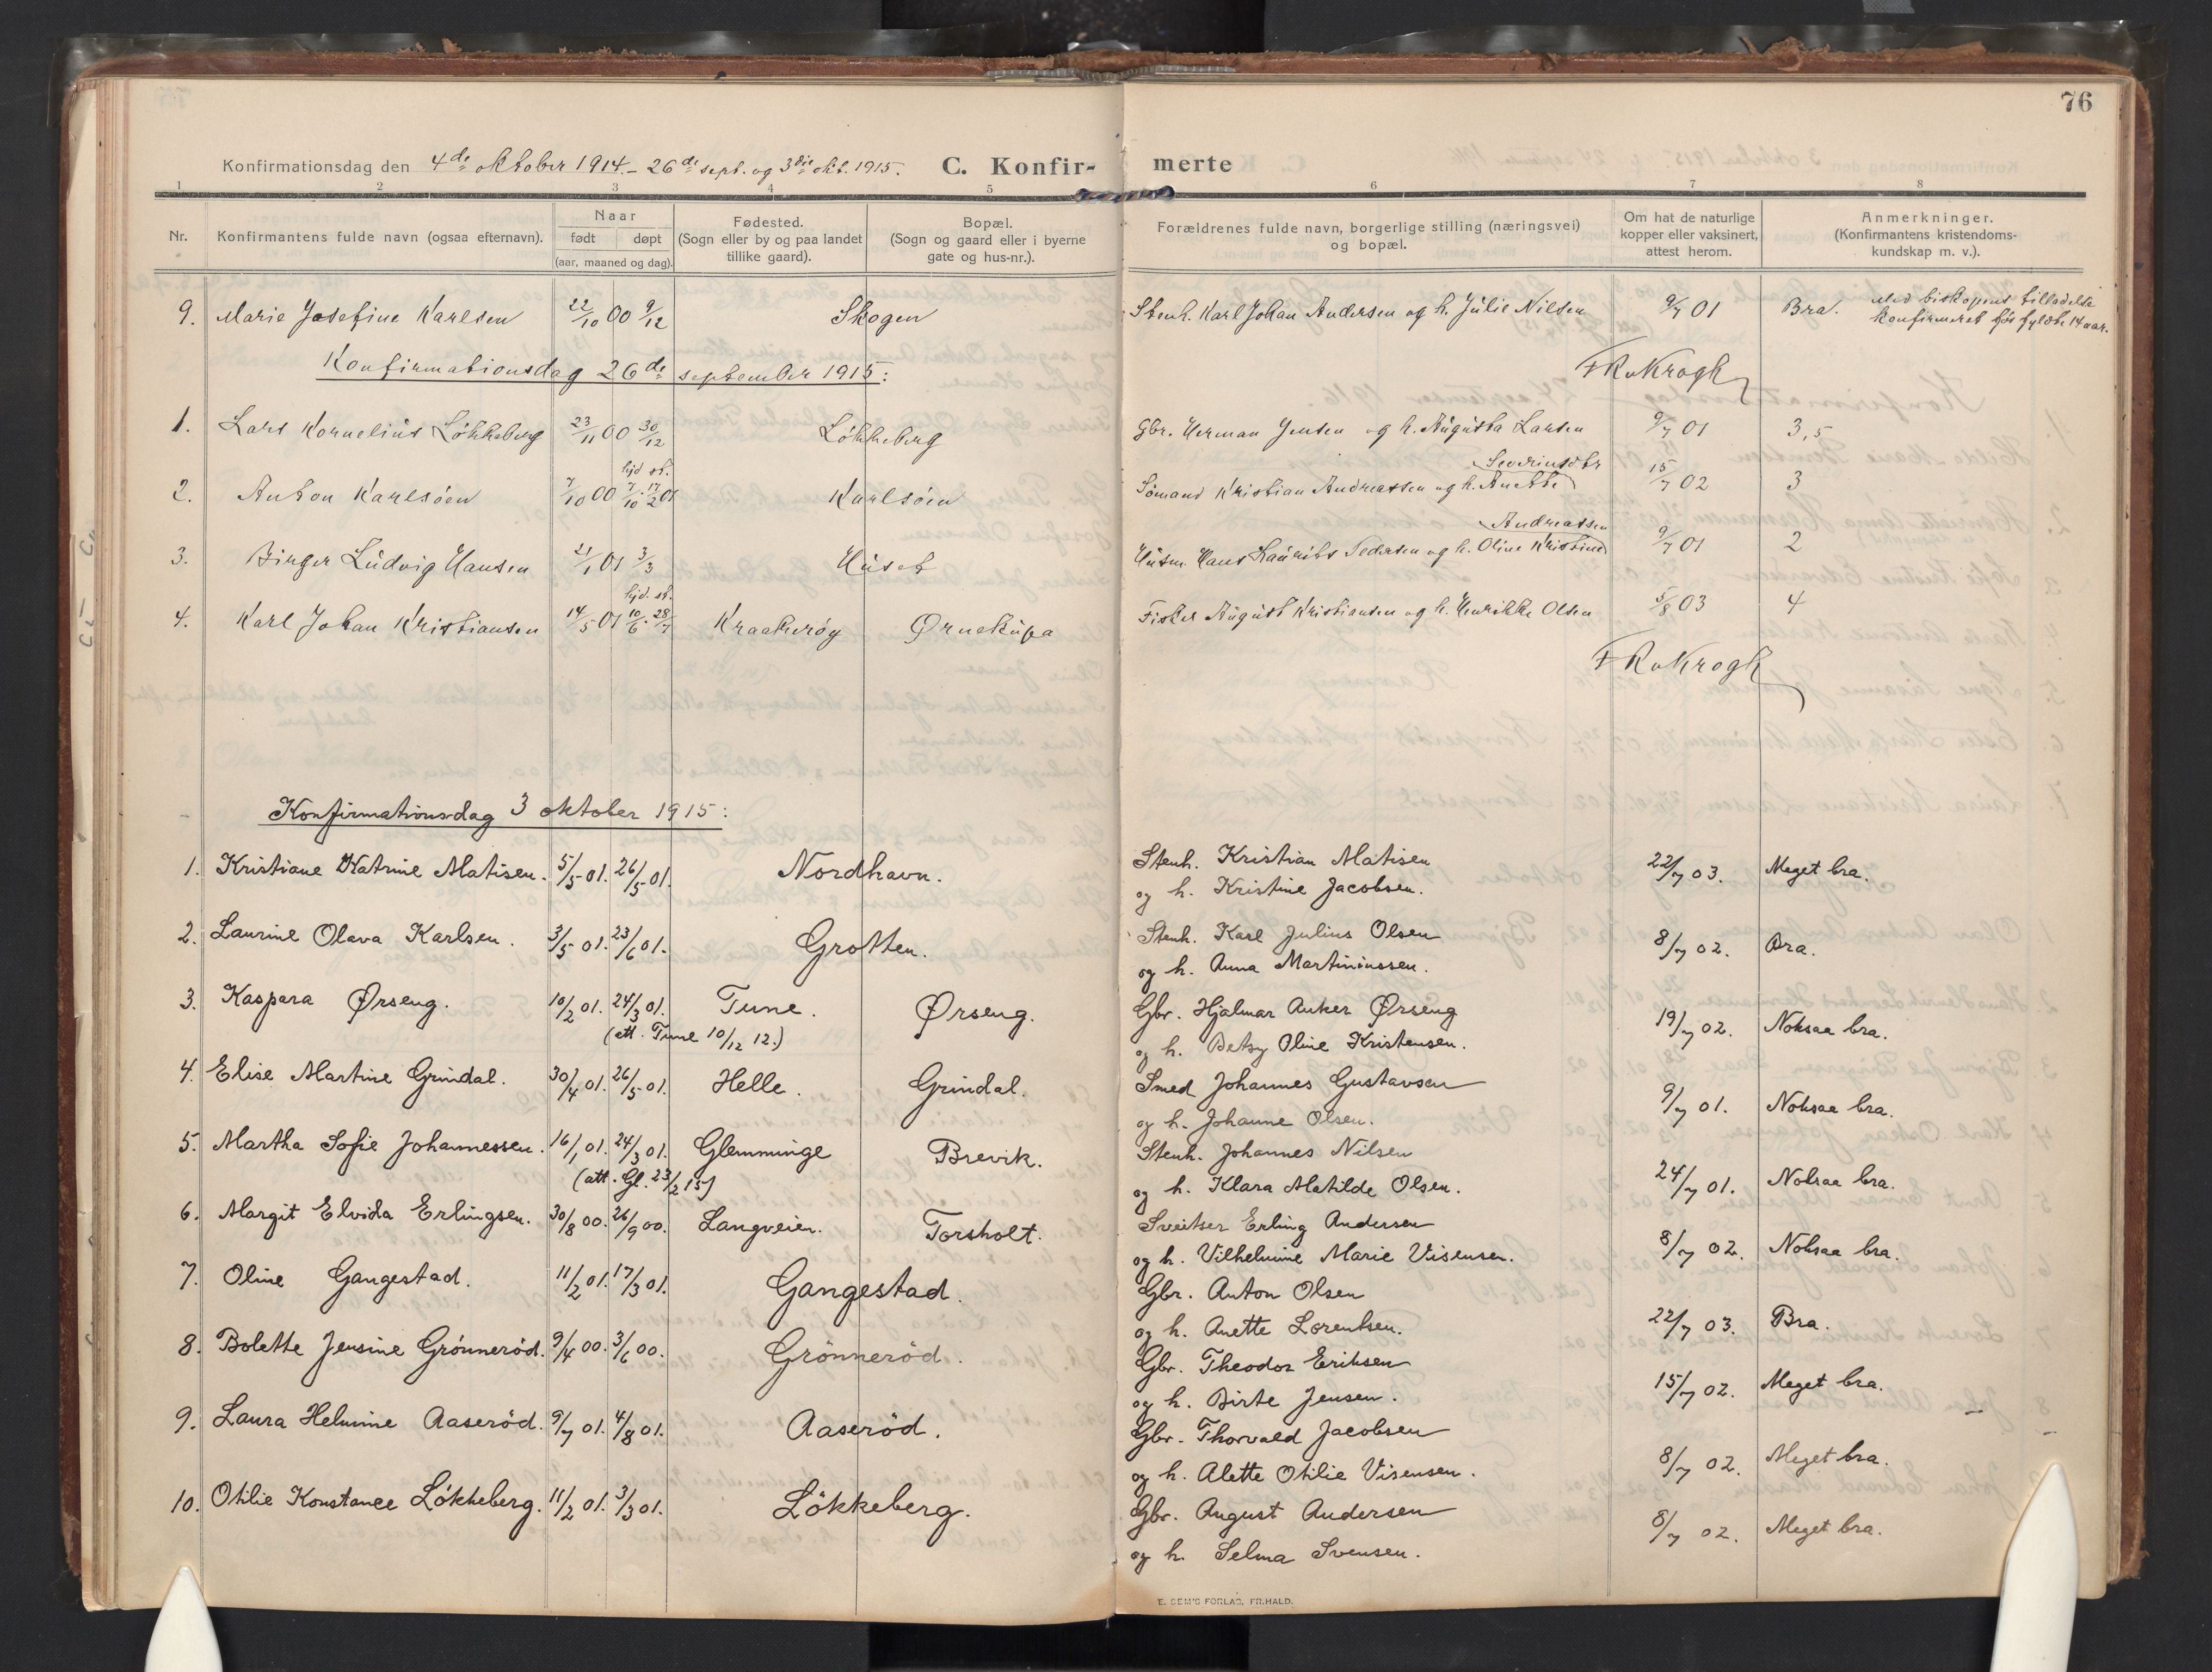 76
Konfirmationsdag den 4de oktober 1914 - 26de sept. og 3die okt. 1915. C. Konfir- merte
1 2 3 4 5 6 7 8
Nr. Konfirmantens fulde navn (ogsaa efternavn). Naar født døpt (aar, maaned og dag). Fødested. (Sogn eller by og paa landet tillike gaard). Bopæl. (Sogn og gaard eller i byerne gate og hus-nr.). Forældrenes fulde navn, borgerlige stilling (næringsvei) og bopæl. Om hat de naturlige kopper eller vaksinert, attest herom. Anmerkninger. (Konfirmantens kristendoms-kundskap m. v.).
9. Marie Josefine Karlsen 22/10 00 9/12 Skogen Stenh. Karl Johan Andersen og h. Julie Nilsen 9/7 01 Bra. Med biskopens tilladelse
konfirmert før fyldte 14 aar.
Konfirmationsdag 26de september 1915:
FRvKrogh
1. Lars Kornelius Løkkeberg 23/11 00 30/12 Løkkeberg Gbr. Herman Jensen og h. Augusta Larsen 9/7 01 3,5
hjd. st. Severinsdtr
2. Anton Karlsöen 7/10 00 7/10. 17/2 01 Karlsöen Sömand Kristian Andreassen og h. Anette 15/7 02 3
Andreassen
3. Birger Ludvig Hansen 21/1 01 3/3 Huset Husm. Hans Laurits Pedersen og h. Oline Kristine 9/7 01 2
hjd. st.
4. Karl Johan Kristiansen 14/5 01 10/6. 28/7 Kraakerøy Ørnekupa Fisker August Kristiansen og h. Henrikke Olsen 5/8 03 4
FRvKrogh
Konfirmationsdag 3 oktober 1915:
1. Kristiane Katrine Matisen. 5/5 01. 26/5 01. Nordhavn. Stenh. Kristian Matisen 22/7 03. Meget bra.
og h. Kristine Jacobsen.
2. Laurine Olava Karlsen. 3/5 01. 23/6 01. Grotten. Stenh. Karl Julius Olsen 8/7 02. Bra.
og h. Anna Martiniussen.
3. Kaspara Ørseng. 10/2 01. 24/3 01. Tune. Ørseng. Gbr. Hjalmar Anker Ørseng 19/7 02. Noksaa bra.
(att. Tune 10/12 12.) og h. Betsy Oline Kristensen.
4. Elise Martine Grindal. 30/4 01. 26/5 01. Helle. Grindal. Smed Johannes Gustavsen 9/7 01. Noksaa bra.
og h. Johanne Olsen.
5. Martha Sofie Johannessen. 16/1 01. 24/3 01. Glemminge Brevik. Stenh. Johannes Nilsen 24/7 01. Noksaa bra.
(att. Gl. 23/2 15) og h. Klara Matilde Olsen.
6. Margit Elvida Erlingsen. 30/8 00. 26/9 00. Langveien. Torsholt. Sveitser Erling Andersen 8/7 02. Noksaa bra.
og h. Vilhelmine Marie Visensen.
7. Oline Gangestad. 11/2 01. 17/3 01. Gangestad. Gbr. Anton Olsen 22/7 03. Bra.
og h. Anette Lorentsen.
8. Bolette Jensine Grönneröd. 9/4 00. 3/6 00. Grönneröd. Gbr. Theodor Eriksen 15/7 02. Meget bra.
og h. Birte Jensen.
9. Laura Helmine Aaseröd. 9/7 01. 4/8 01. Aaseröd. Gbr. Thorvald Jacobsen 8/7 02. Meget bra.
og h. Alette Otilie Visensen.
10. Otilie Konstance Lökkeberg. 11/2 01. 3/3 01. Lökkeberg. Gbr. August Andersen 8/7 02. Meget bra.
og h. Selma Svensen.
E. SEM'S FORLAG, FR.HALD.